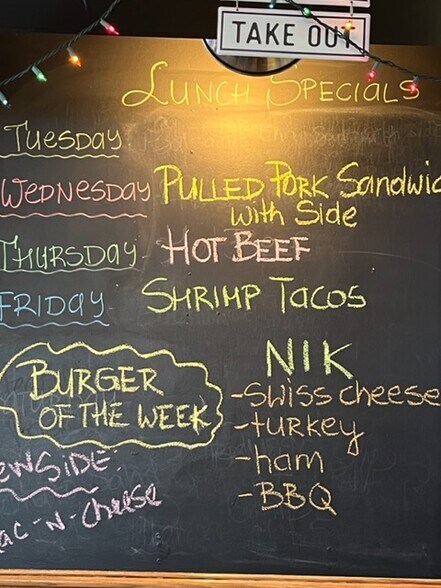 TAKE OUT
LUNCH SPECIALS
TUESDAY
WEDNESDAY PULLED PORK Sandwic
with Side
THURSDAY HOT BEEF
FRIDAY SHRIMP TACOS
BURGER
OF THE WEEK
NIK
-Swiss cheese
-turkey
-ham
-BBQ
EWSIDE:
ac-N-cheese